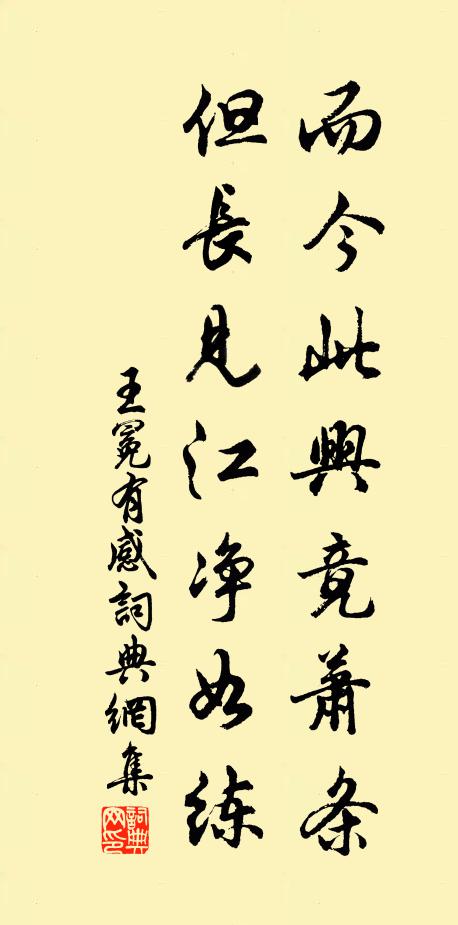 而今此興竟蕭条
但長見江净如練
王冕有感詞典網集
詞典
网印